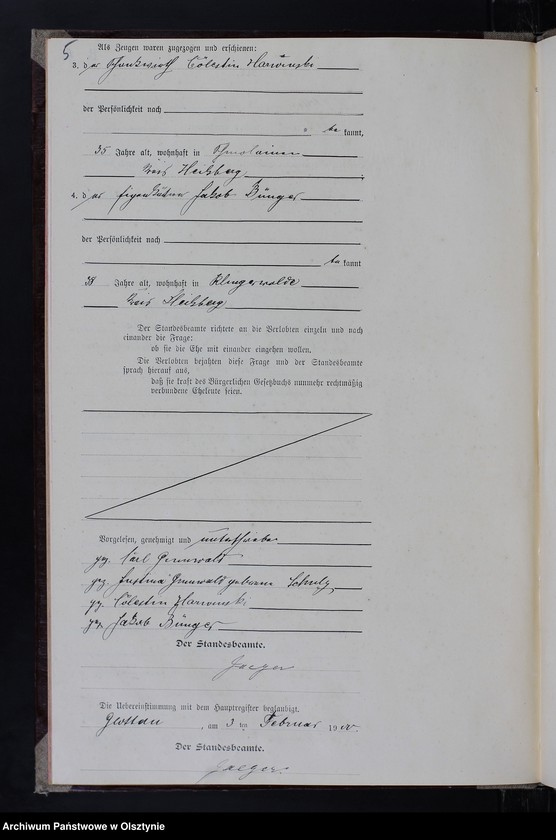 5
Als Zeugen waren zugezogen und erschienen:
3. der Cölestin
der Persönlichkeit nach
be kannt,
35 Jahre alt, wohnhaft in Schmolainen
Kreis Heilsberg
4. der Eigenkätner Jakob Bünger
der Persönlichkeit nach
be kannt
38 Jahre alt, wohnhaft in Klingerswalde
Kreis Heilsberg
Der Standesbeamte richtete an die Verlobten einzeln und nach
einander die Frage:
ob sie die Ehe mit einander eingehen wollen.
Die Verlobten bejahten diese Frage und der Standesbeamte
sprach hierauf aus,
daß sie kraft des Bürgerlichen Gesetzbuchs nunmehr rechtmäßig
verbundene Eheleute seien.
Vorgelesen, genehmigt und unterschrieben
gez. Karl Grunwald
gez. Justina Grunwald geborene Schulz
gez. Cölestin
gez. Jakob Bünger
Der Standesbeamte.
Jaeger
Die Uebereinstimmung mit dem Hauptregister beglaubigt.
Glottau, am 3 ten Februar 1900.
Der Standesbeamte.
Jaeger.
Archiwum Państwowe w Olsztynie